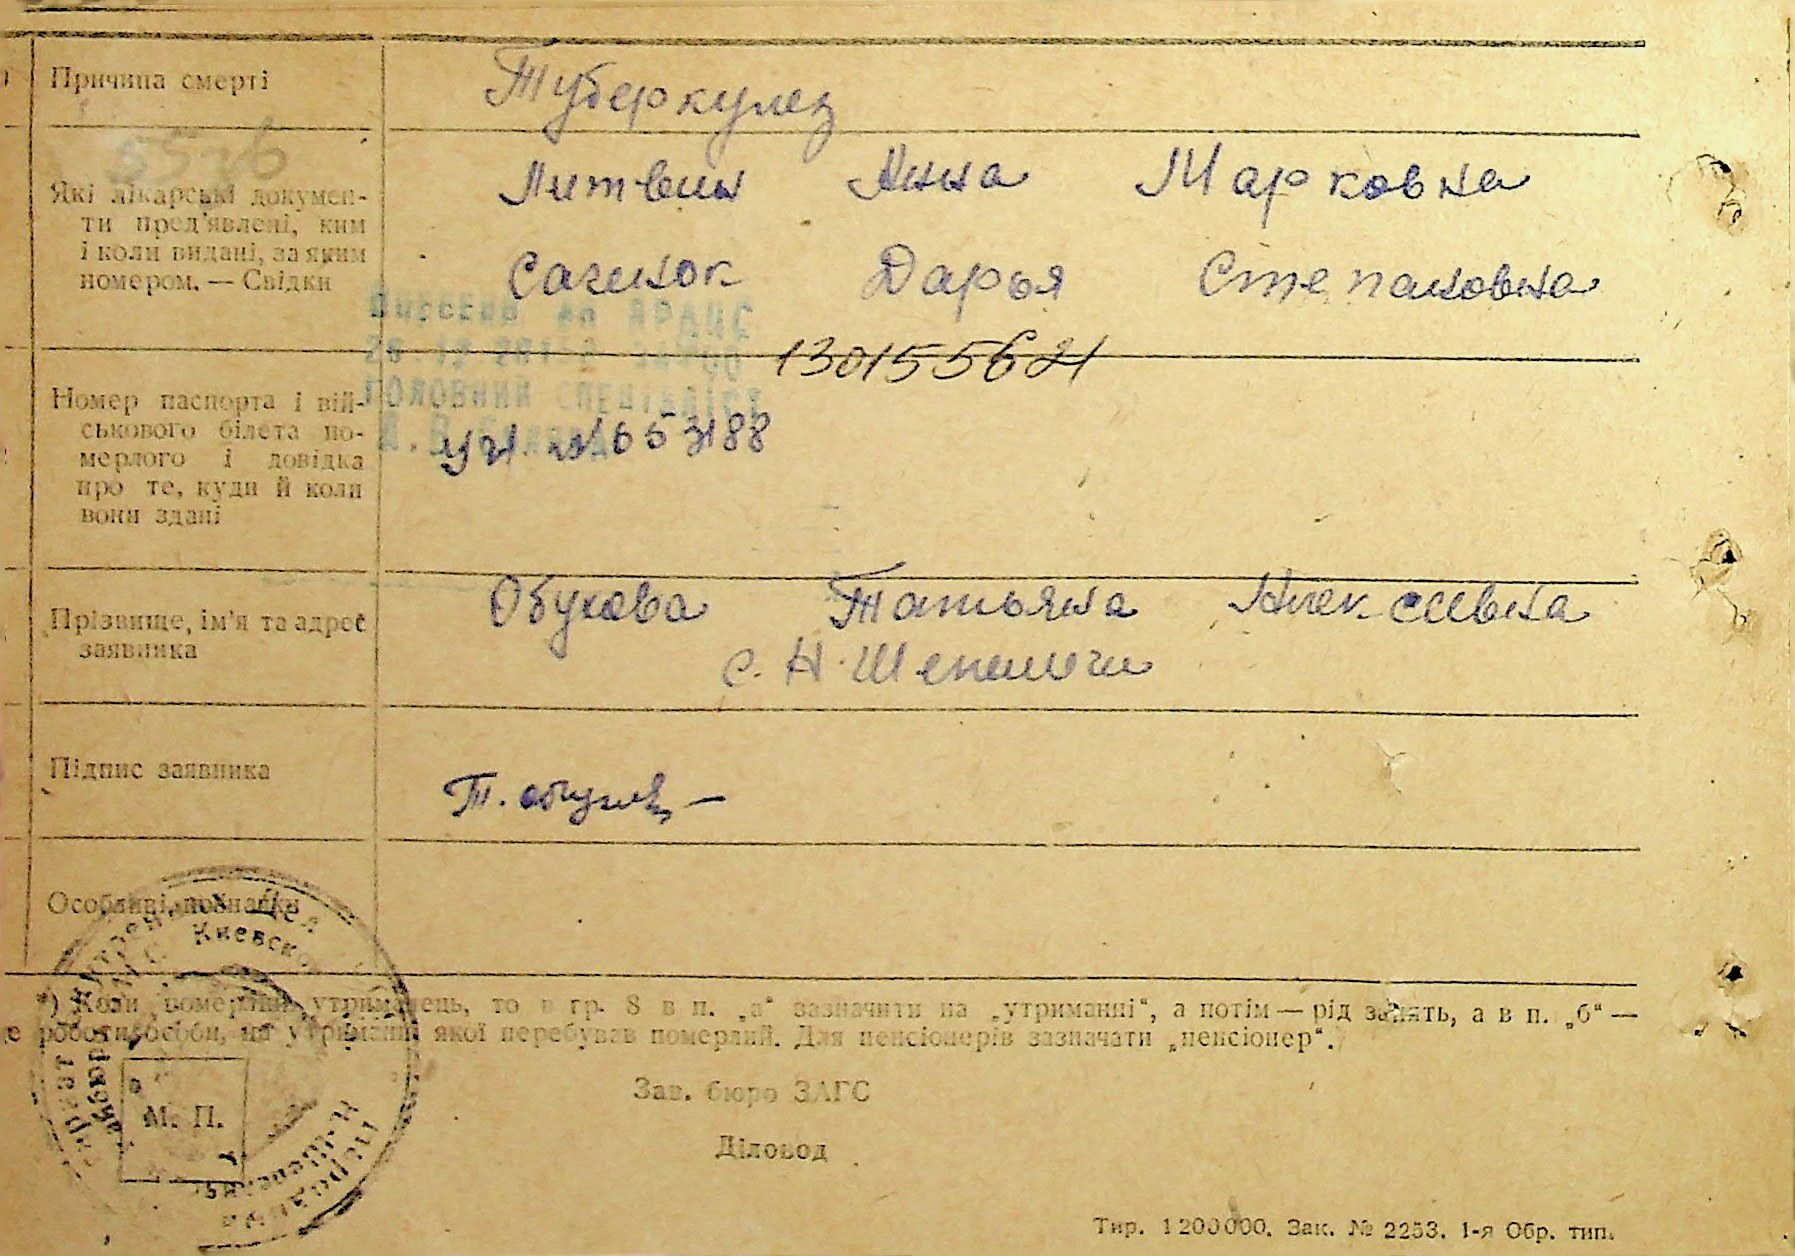 Причина смерті
Туберкулез
Які лікарські докумен-
ти пред'явлені, ким
і коли видані, за яким
номером. — Свідки
Литвин Анна Марковна
Сачинок Дарья Степановна
130155621
Номер паспорта і вій-
ськового білета по-
мерлого і довідка
про те, куди й коли
вони здані
653188
Прізвище, ім'я та адрес
заявника
Обухова Татьяна Алексеевна
с. Н. Шепеличи
Підпис заявника
Т. Обухова
Особливі позначки
*) Коли померлий утриманець, то в гр. 8 в п. „а“ зазначити на „утриманні“, а потім — рід занять, а в п. „б“ —
е роботи особи, на утриманні якої перебував померлий. Для пенсіонерів зазначати „пенсіонер“.
Зав. бюро ЗАГС
М. П.
Діловод
Тир. 1200000. Зак. № 2253. 1-я Обр. тип.